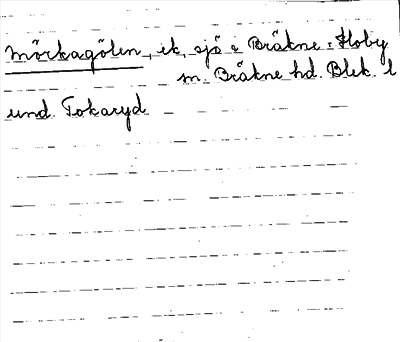 Mörkagölen, ik, sjö i Bräkne-Hoby
m. Bräkne hd. Blek. l
und. Tokaryd